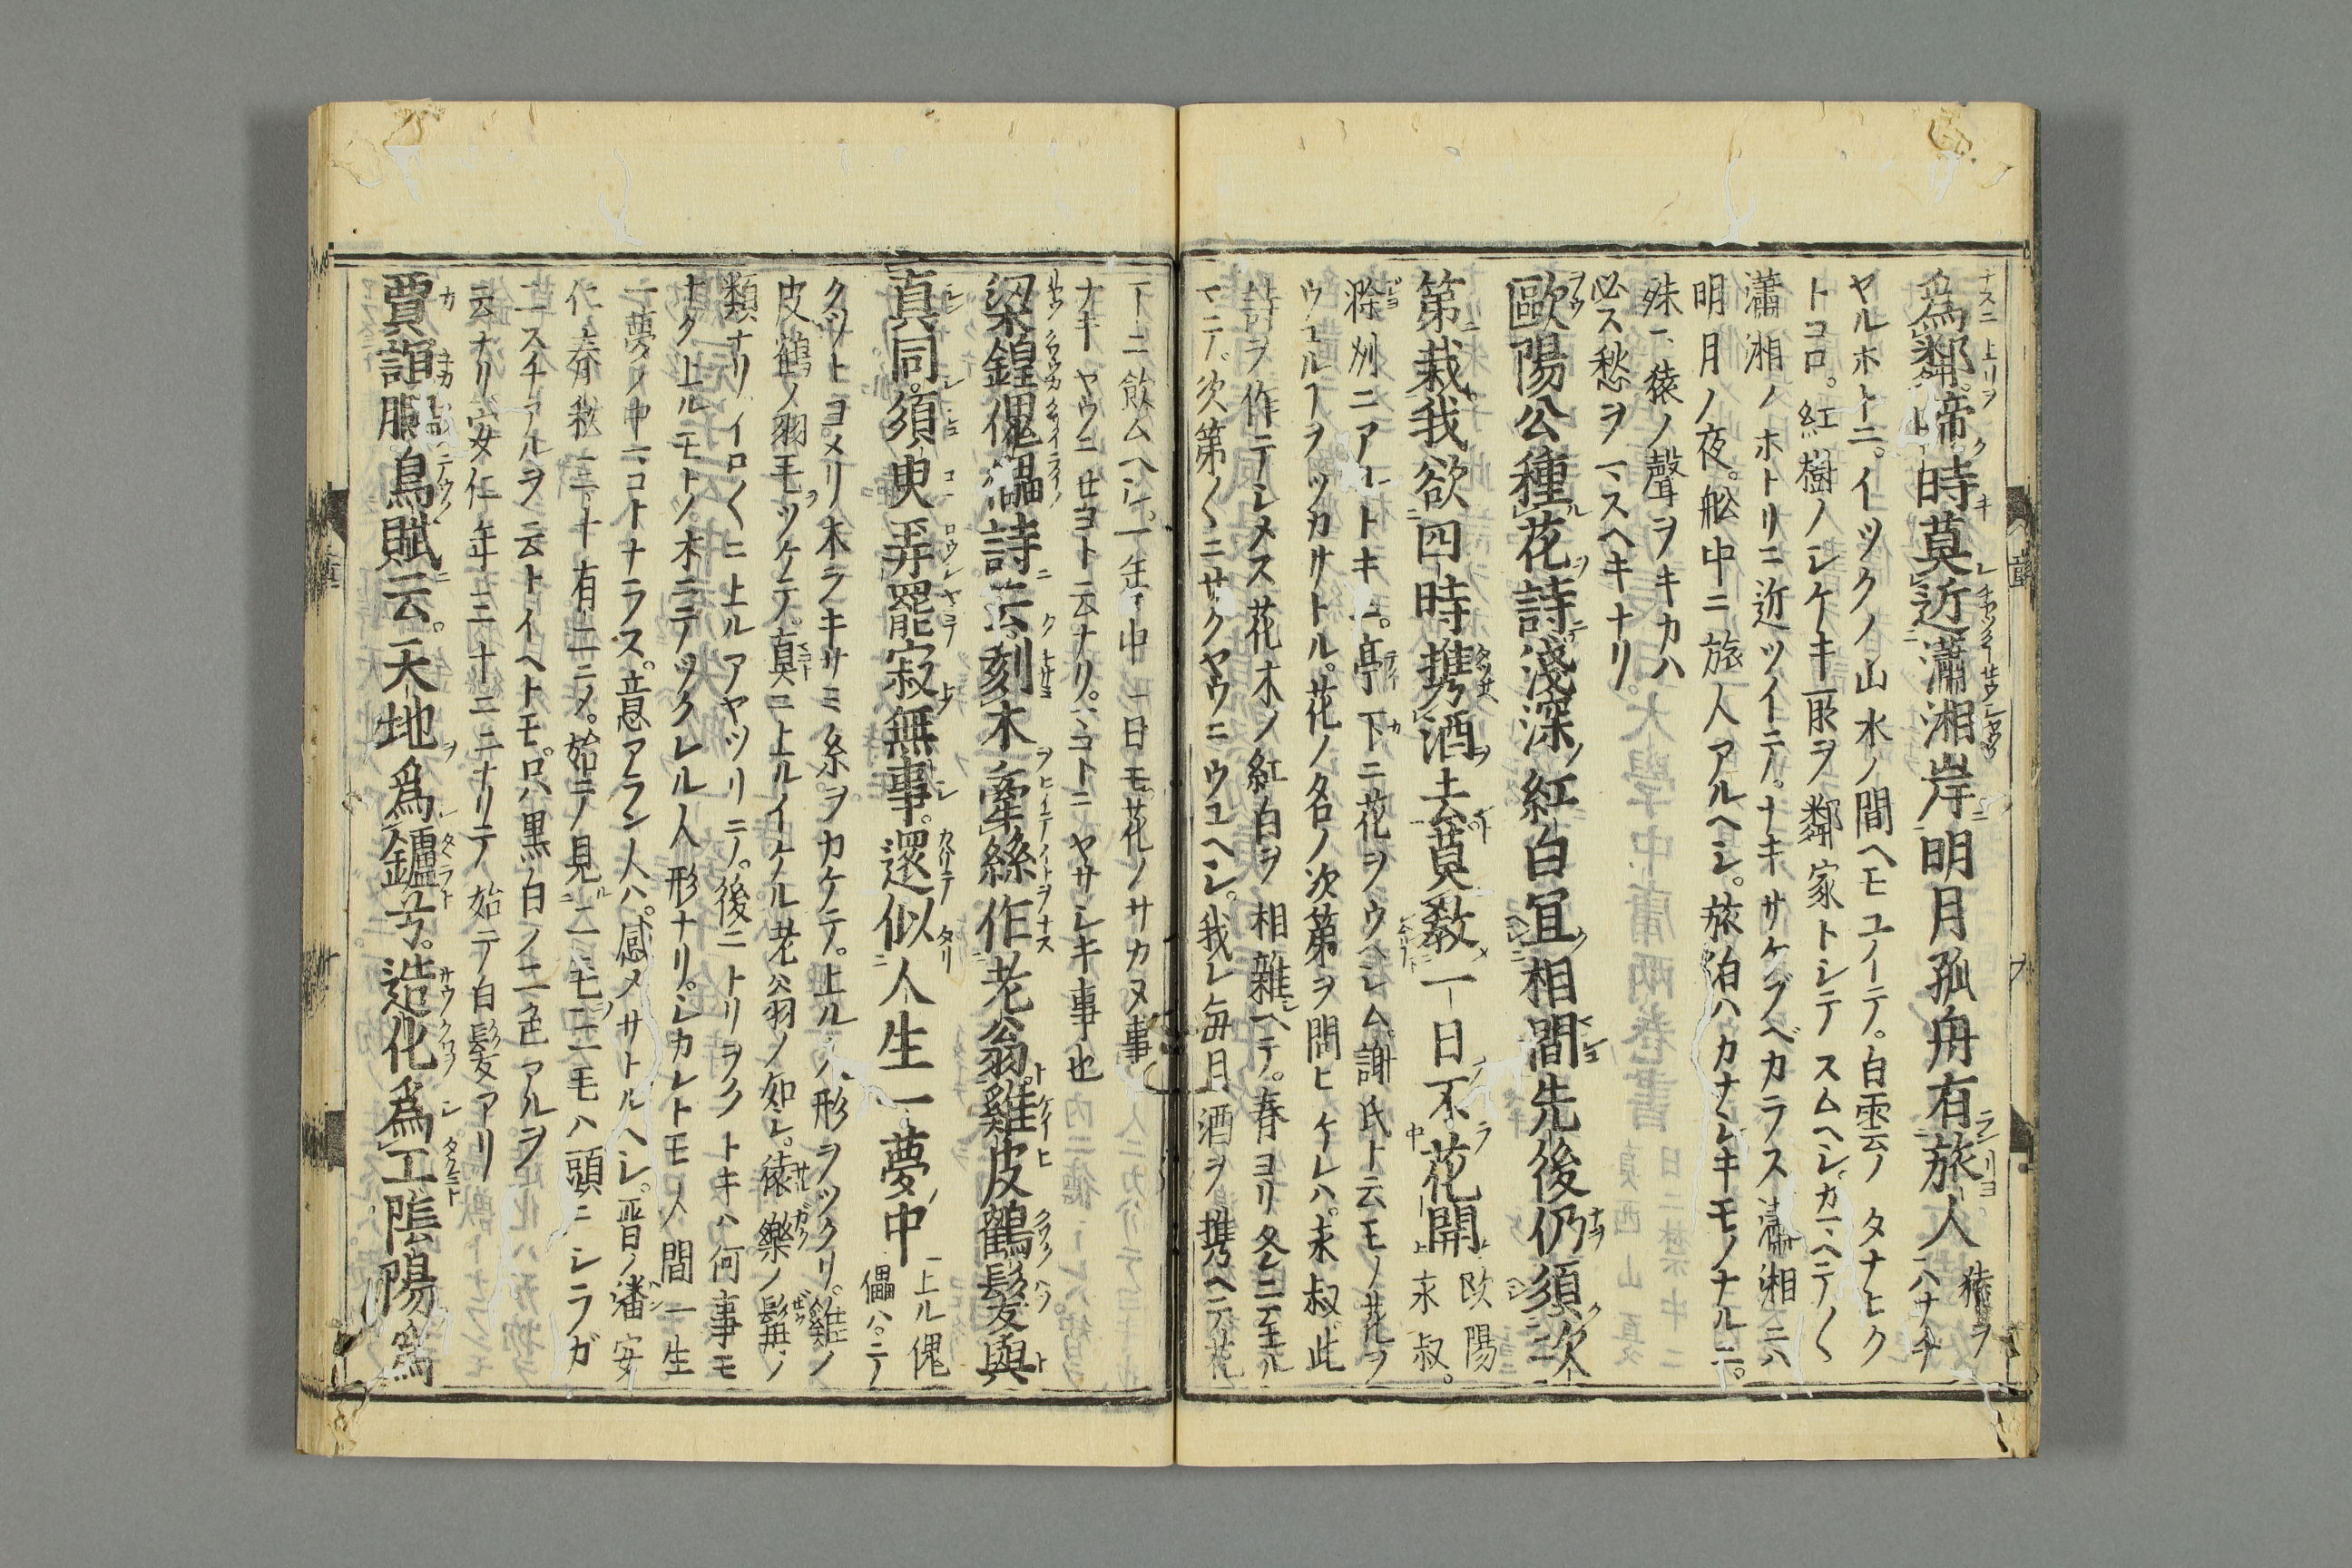 為鄰啼時莫近瀟湘岸明月孤舟有旅人 猿ヲハナチ
ヤルホトニ。イツクノ山水ノ間ヘモユイテ。白雲ノタナヒク
トコロ。紅樹ノシケキ所ヲ鄰家トシテスムヘシ。カマヘテ〱
瀟湘ノホトリニ近ツイテ。ナキサケブベカラス瀟湘ニハ
明月ノ夜。舩中ニ旅人アルヘシ。旅泊ハカナシキモノナルニ。
殊ニ猿ノ聲ヲキカハ
必ス愁ヲマスヘキナリ。
歐陽公種花詩淺深紅白宜相間先後仍須次
第栽我欲四時携酒去莫教一日不花開 欧陽永叔。
滁州ニアルトキニ。亭下ニ花ヲウヘシム。謝氏ト云モノ花ヲ
ウユルヿヲツカサトル。花ノ名ノ次第ヲ問ヒケレハ。永叔此
詩ヲ作テシメス花木ノ紅白ヲ相雜ヘテ。春ヨリ冬ニ至ル
マテ。次第〱ニサクヤウニウユヘシ。我レ毎日酒ヲ携ヘテ花
下ニ飲ムヘシ。一年中一日モ花ノサカヌ事
ナキヤウニせヨト云ナリ。マコトニヤサシキ事也
梁鍠傀儡詩云刻木牽絲作老翁雞皮鶴髮與
真同。須臾弄罷寂無事。還似人生一夢中 上ル傀儡ハ。ニテ
クヅトヨメリ木ヲキサミ糸ヲカケテ。上ル人形ヲツクリ。雞ノ
皮鶴ノ羽毛ヲツケテ。真ニ上ルイケル老翁ノ如シ。猿樂ノ髯ノ
類ナリイロ〱ニ上ルアヤツリニテ。後ニトリヲクトキハ何事モ
ナク上ルモトノ木ニテツクレル人形ナリ。シカレトモ人間一生
一夢ノ中マコトナラス。意アラン人ハ。感メサトルヘシ。晋ノ潘安
仁春秋三十有二ニメ。始テ見二毛ヲ二毛ハ頭ニシラガ
二スチアルヲ云トイヘトモ。只黒白ノ二色アルヲ
云ナリ安仁年三十二ニナリテ始テ白髮アリ
賈誼鵩鳥賦云。天地為鑪兮。造化為工陰陽為